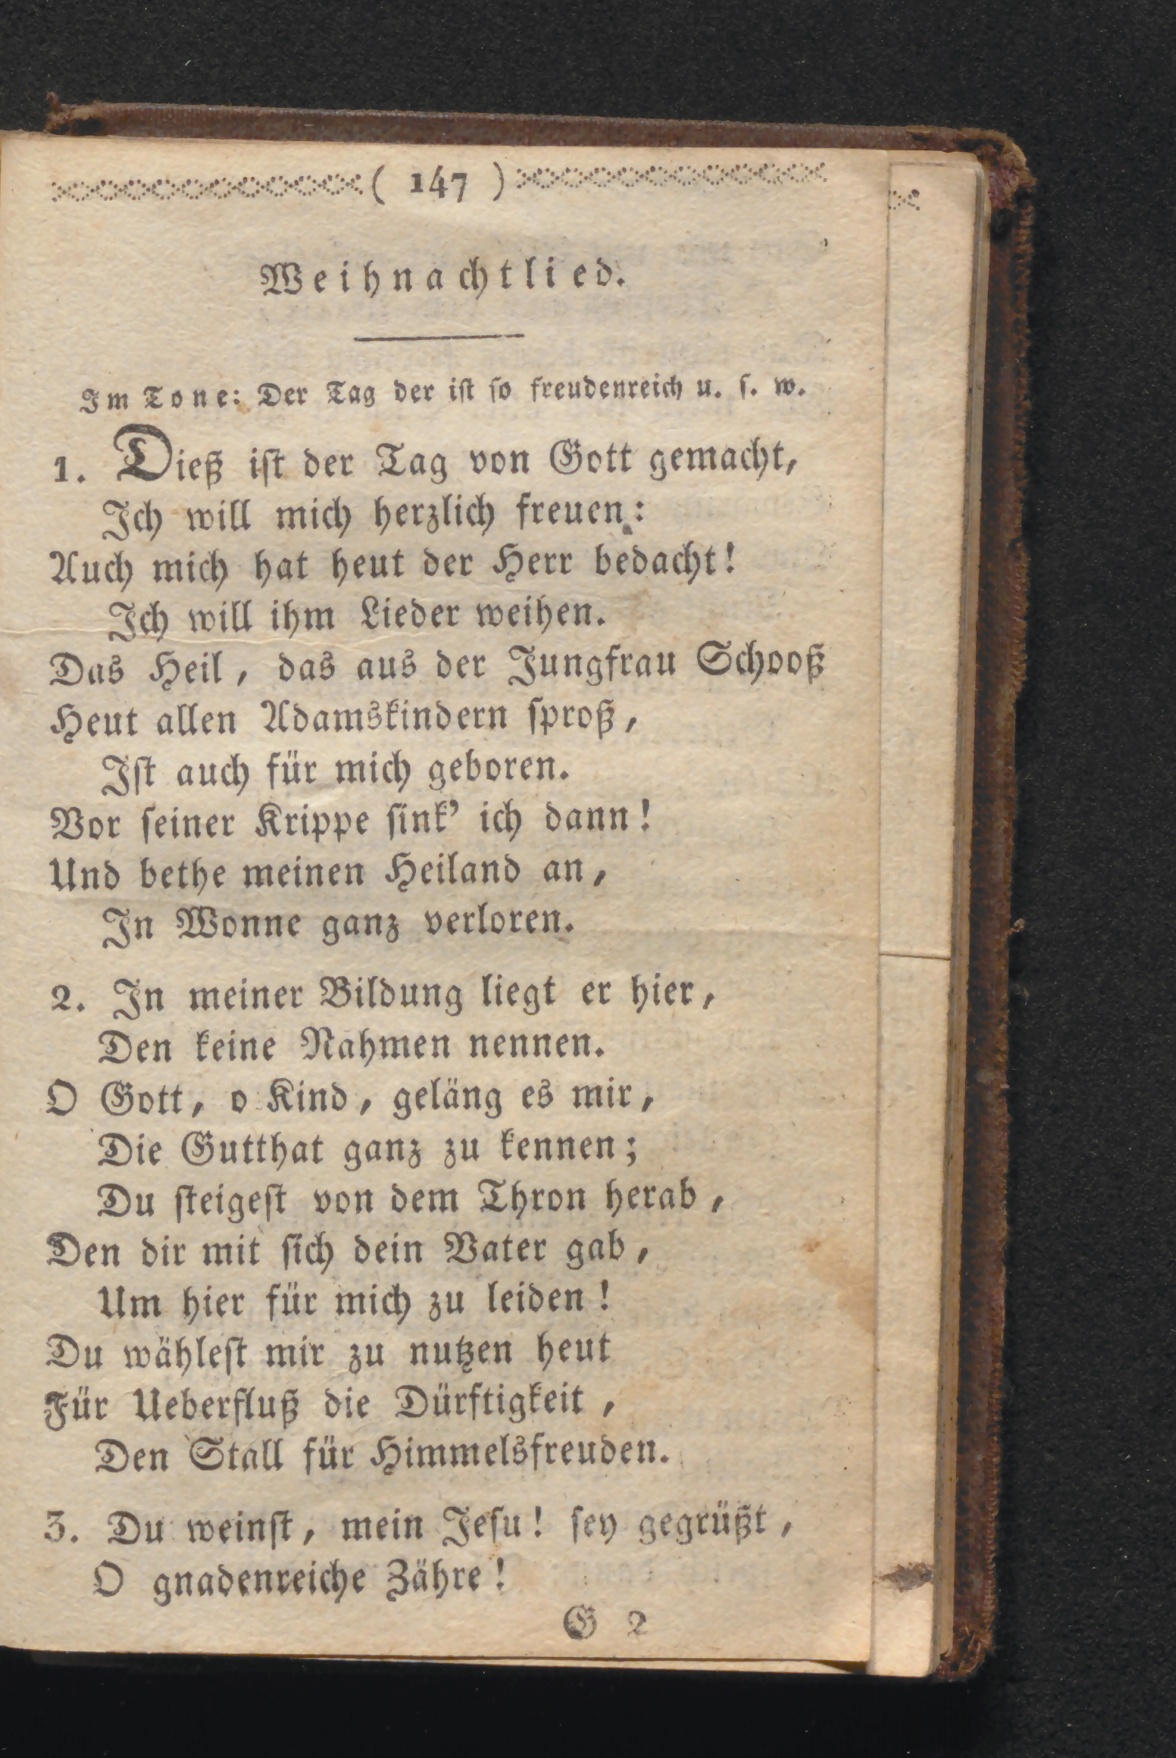 ( 147 )
Weihnachtlied.
Im Tone: Der Tag der ist so freudenreich u. s. w.
1. Dieß ist der Tag von Gott gemacht,
Ich will mich herzlich freuen:
Auch mich hat heut der Herr bedacht!
Ich will ihm Lieder weihen.
Das Heil, das aus der Jungfrau Schooß
Heut allen Adamskindern sproß,
Ist auch für mich geboren.
Vor seiner Krippe sink' ich dann!
Und bethe meinen Heiland an,
In Wonne ganz verloren.
2. In meiner Bildung liegt er hier,
Den keine Nahmen nennen.
O Gott, o Kind, geläng es mir,
Die Gutthat ganz zu kennen;
Du steigest von dem Thron herab,
Den dir mit sich dein Vater gab,
Um hier für mich zu leiden!
Du wählest mir zu nutzen heut
Für Ueberfluß die Dürftigkeit,
Den Stall für Himmelsfreuden.
3. Du weinst, mein Jesu! sey gegrüßt,
O gnadenreiche Zähre!
G 2